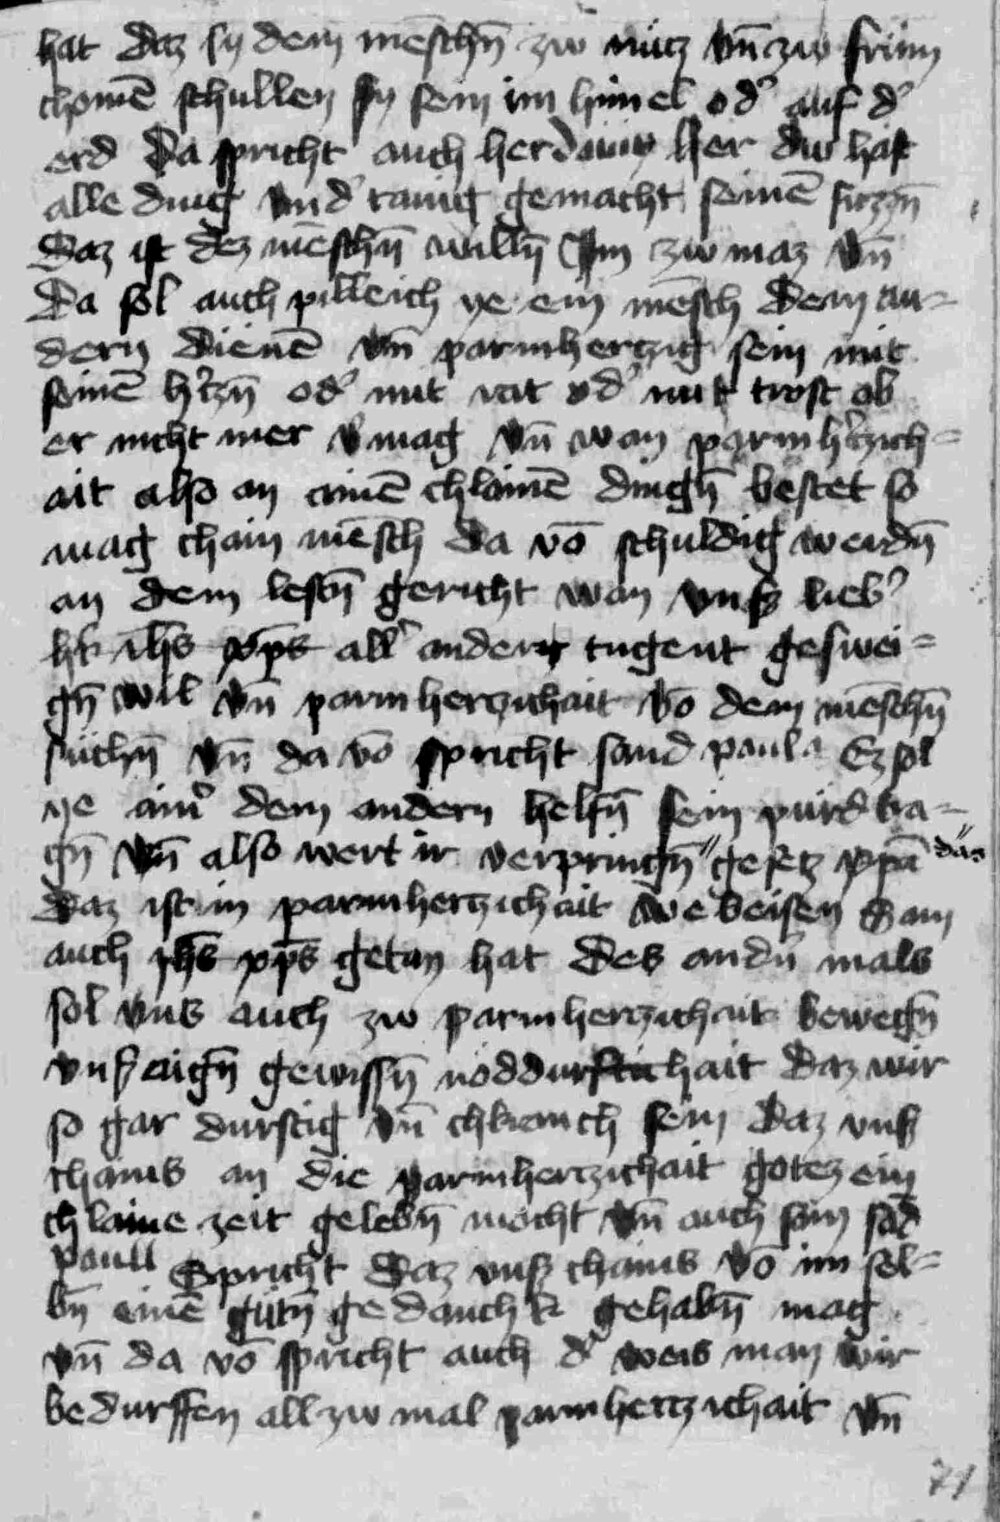 hat daz sy dem mēschn̄ zw nucz vn̄ zw frum
chomē schullen sy sein im himel od' auf d'
erd Da spricht auch her dauit her dw hast
alle ding vnd' tanig gemacht seinē fuzzn̄
Daz ist dez mēschn̄ willn̄ Im zw maz vn̄
Da sol auch pilleich ye ein mēsch dem an=
dern dienē vn̄ parmherczig sein mit
seinē h'czn̄ od' mit rat od' mit trost ob
er nicht mer v'mag vn̄ wan parmh'czich=
ait also an ainē chlainē dingn̄ bestet so
mag chain mēsch da vō schuldig werdn̄
an dem lestn̄ gericht wan vns's lieb'
h'r ih̄s xp̄s all' andern tugent geswei=
gn̄ wil vn̄ parmherczichait vō dem mēschn̄
suchn̄ vn̄ da vō spricht sand paul9 Ez sol
ye ain' dem andern helfn̄ sein purd tra=
gn̄ vn̄ also wert ir verpringn̄ " gesecz xp̄i "das
Daz ist in parmherczichait we beisen Dam
auch ih̄s xp̄s getan hat Des and'n mals
sol vns auch zw parmherczichait bewegn̄
vns' aign̄ gewissn̄ noddurftichait daz wir
so gar durftig vn̄ chkranch sein Daz vns'
chains an die parmherczichait gotez ein
chlaine zeit gelebn̄ mocht vn̄ auch sam sād
paull Spricht Daz vns' chains vō im sel=
bn̄ einē gutn̄ gedanchk gehabn̄ mag
vn̄ da vō spricht auch d' weis man wir
bedurffen all zw mal parmherczichait vn̄
71